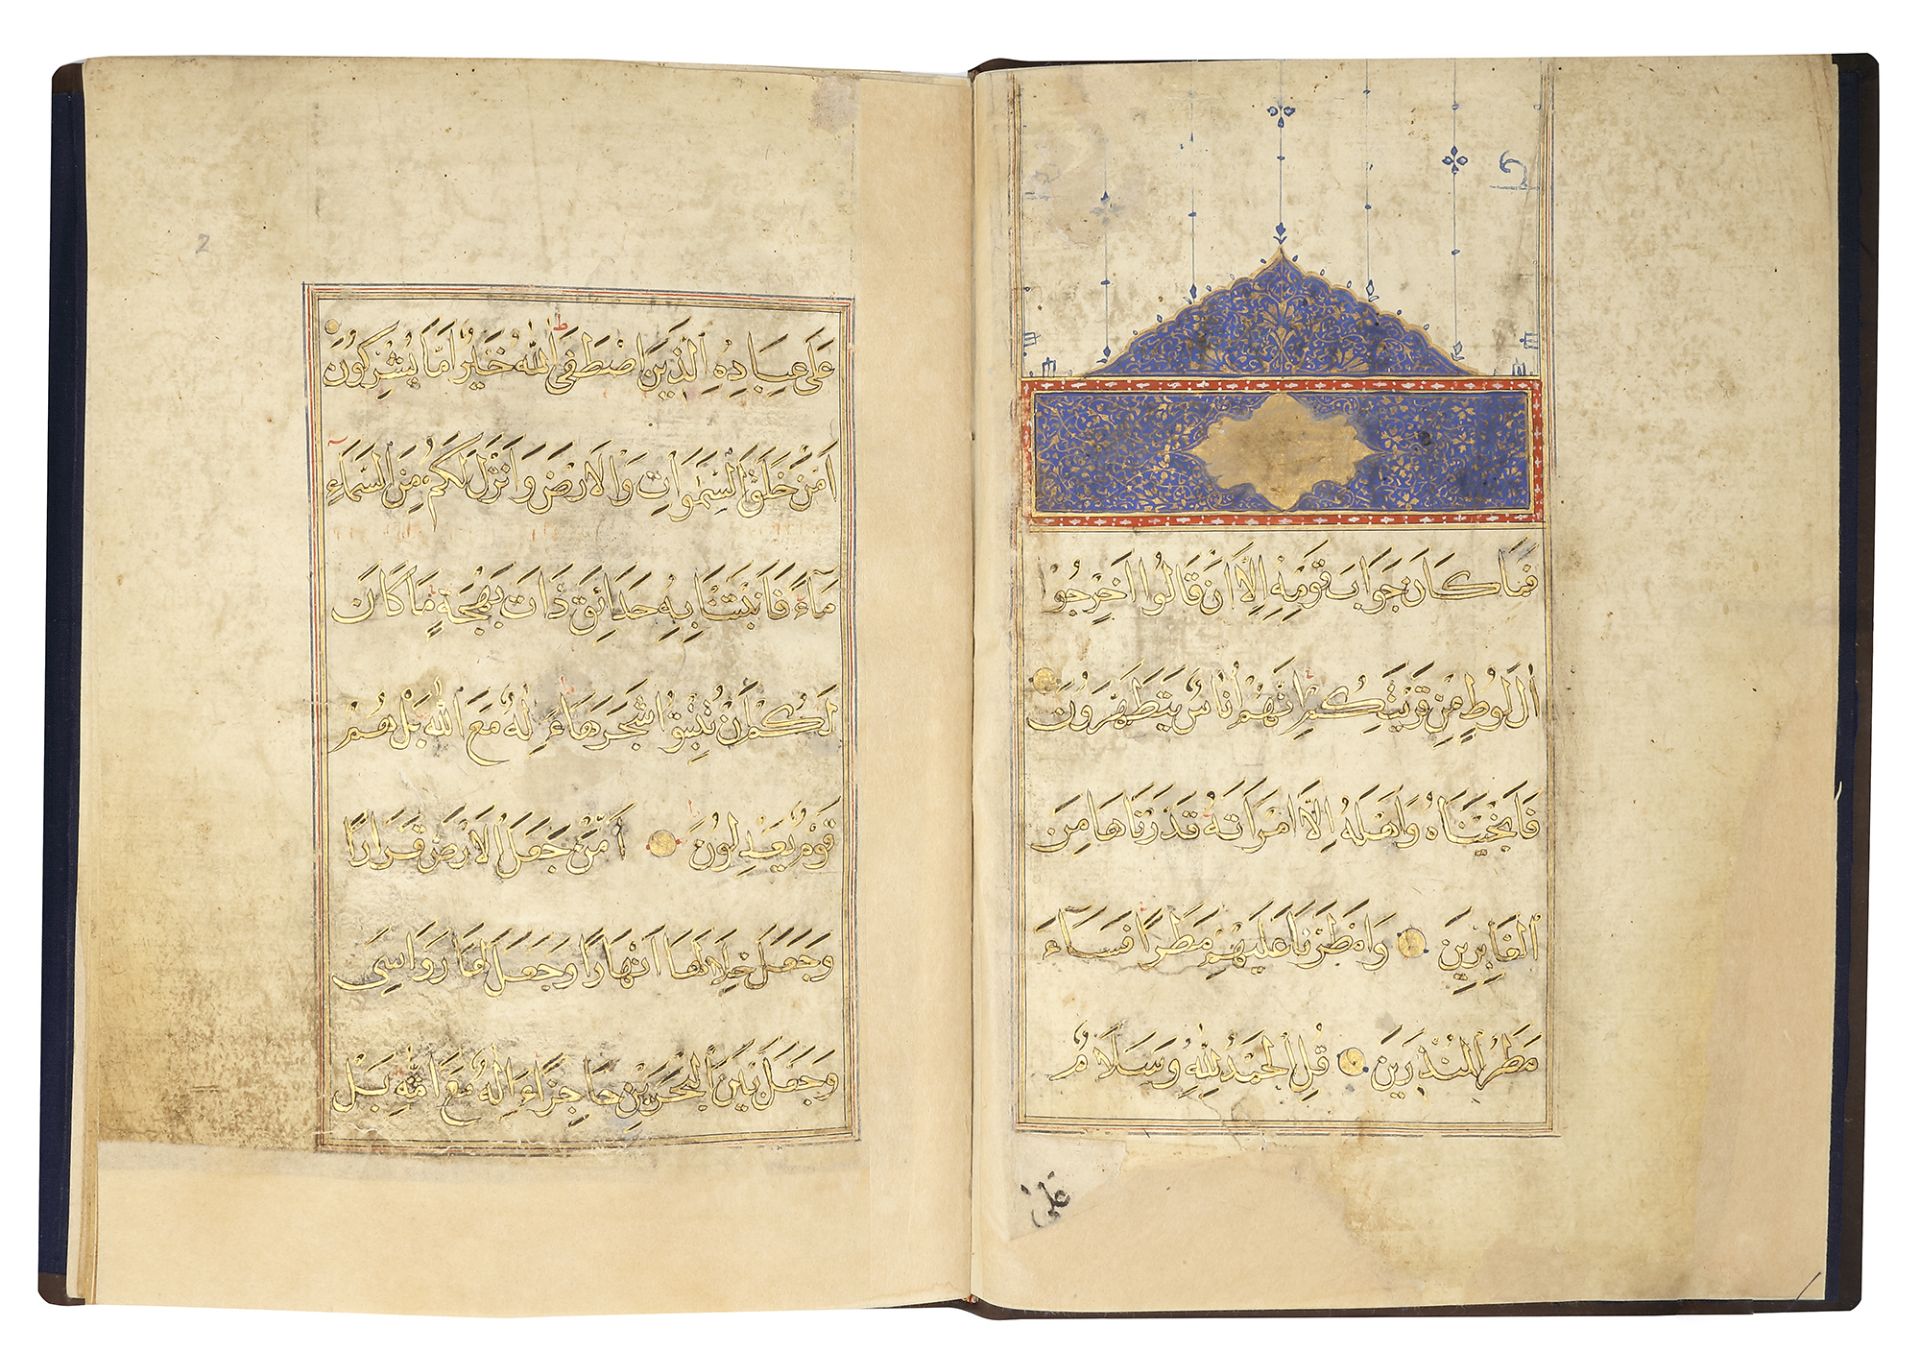 فَمَا كَانَ جَوَابَ قَوْمِهِ اِلَّا اَنْ قَالُوا اَخْرِجُوْا
اٰلَ لُوطٍ مِنْ قَرْيَتِكُمْ اِنَّهُمْ اُنَاسٌ يَتَطَهَّرُونَ
فَاَنْجَيْنَاهُ وَاَهْلَهُ اِلَّا امْرَاَتَهُ قَدَّرْنَاهَا مِنَ
الْغَابِرِينَ وَاَمْطَرْنَا عَلَيْهِمْ مَطَرًا فَسَاءَ
مَطَرُ الْمُنْذَرِينَ قُلِ الْحَمْدُ لِلّٰهِ وَسَلَامٌ
عَلٰى
عَلَى عِبَادِهِ الَّذِينَ اصْطَفَى اٰللّٰهُ خَيْرٌ اَمَّا يُشْرِكُونَ
اَمَّنْ خَلَقَ السَّمٰوَاتِ وَالْاَرْضَ وَاَنْزَلَ لَكُمْ مِنَ السَّمَاءِ
مَاءً فَاَنْبَتْنَا بِهِ حَدَائِقَ ذَاتَ بَهْجَةٍ مَا كَانَ
لَكُمْ اَنْ تُنْبِتُوْا شَجَرَهَا ءَاِلٰهٌ مَعَ اللّٰهِ بَلْ هُمْ
قَوْمٌ يَعْدِلُونَ اَمَّنْ جَعَلَ الْاَرْضَ قَرَارًا
وَجَعَلَ خِلَالَهَا اَنْهَارًا وَجَعَلَ لَهَا رَوَاسِىَ
وَجَعَلَ بَيْنَ الْبَحْرَيْنِ حَاجِزًا ءَاِلٰهٌ مَعَ اللّٰهِ بَلْ
2